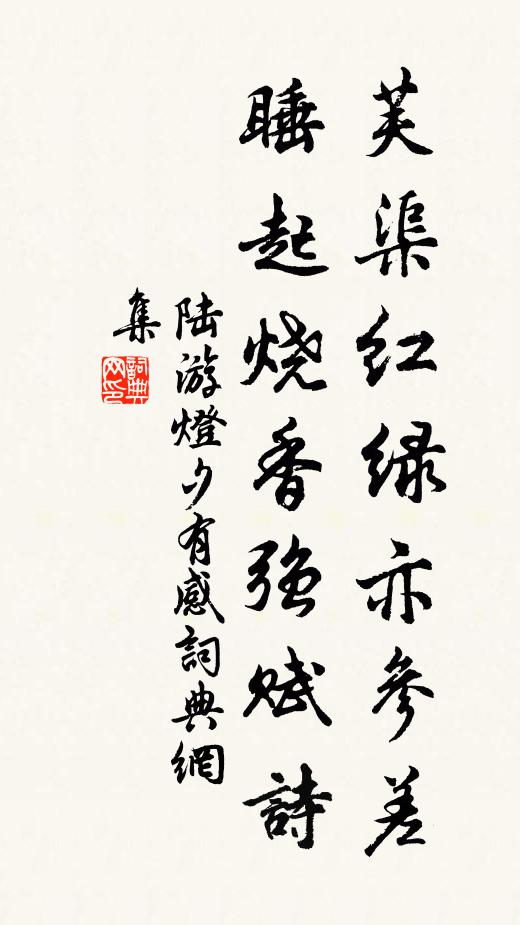 芙渠红绿亦參差
睡起烧香强赋詩
陆游燈夕有感詞典網
集
詞典
网印